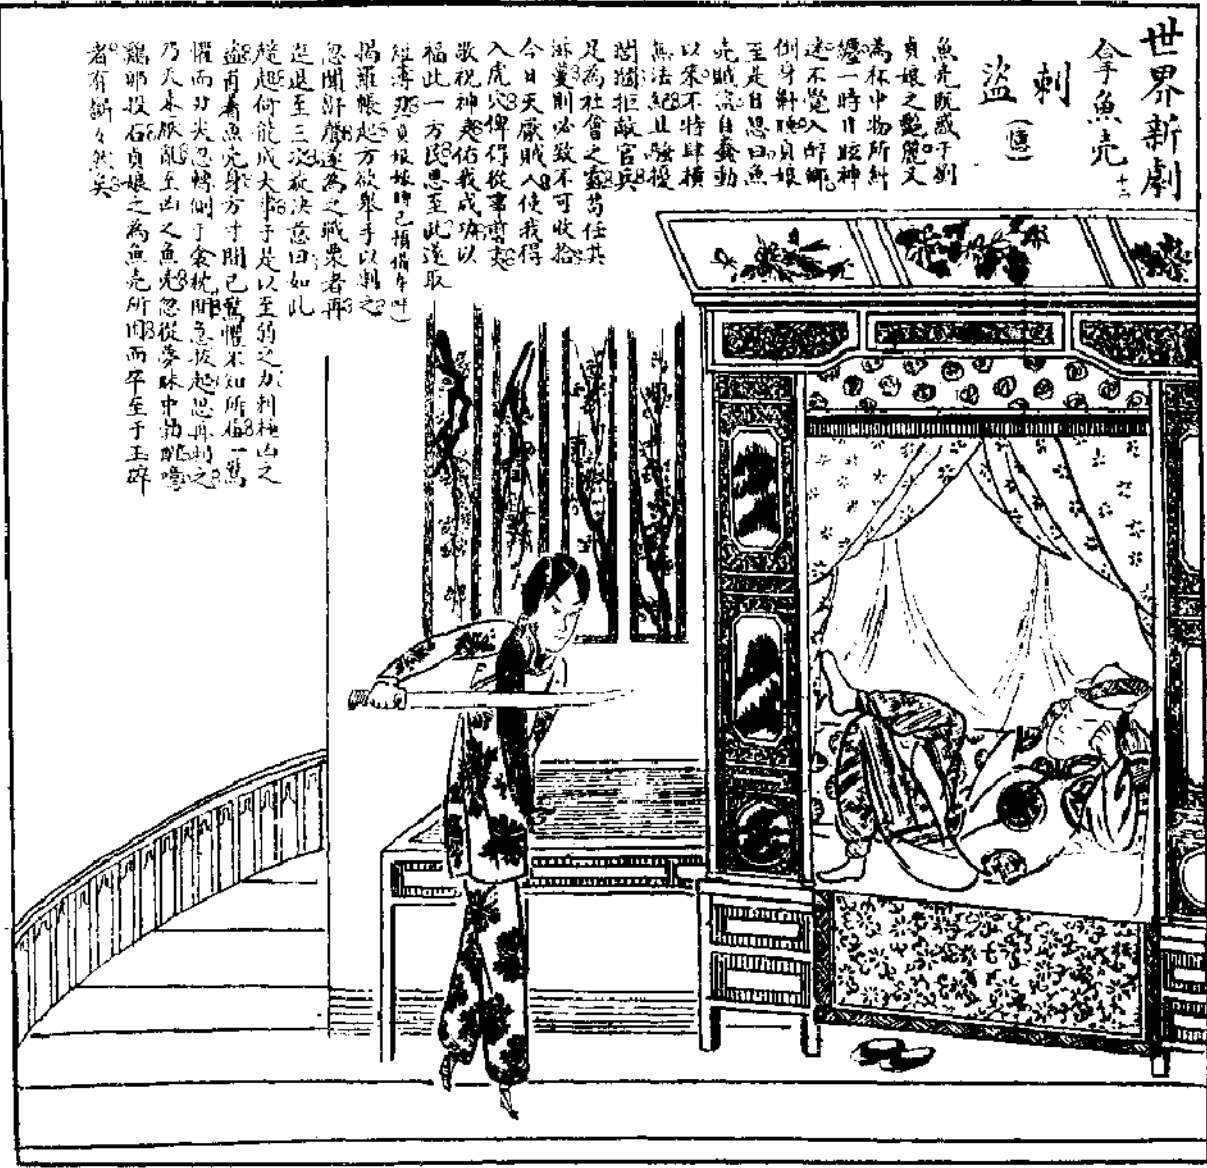 世界新劇
拿魚売 十二
刺
盜
(憶)
魚売既惑于劉
貞娘之艷麗又
為杯中物所糾
纏一時目眩神
迷不覺入醉鄉
倒身鼾睡貞娘
至是自思曰魚
売賊流自蠢動
以來不特肆橫
無法紀且騷擾
閭閻拒敵官兵
足為社會之蠹苟任其
滋蔓則必致不可收拾
今日天厭賊人使我得
入虎穴俾得從事雪
敬祝神其佑我成功以
福此一方民思至此遂取
短薄刃(貞娘娘時已預備
揭羅帳起方欲舉手以刺之
忽聞鼾聲遂為之戰栗者再
逡退至三次旋決意曰如此
趑趄何能成大事于是以至弱之力刺極凶之
盜甫着魚売身方寸間已驚懼不知所
懼而刃尖忽轉側于衾枕間急拔起思再刺之
乃天本脹亂至凶之魚売忽從夢寐中勃
鷄耶投石貞娘之為魚売所困而卒至于玉碎
者有斷々然矣